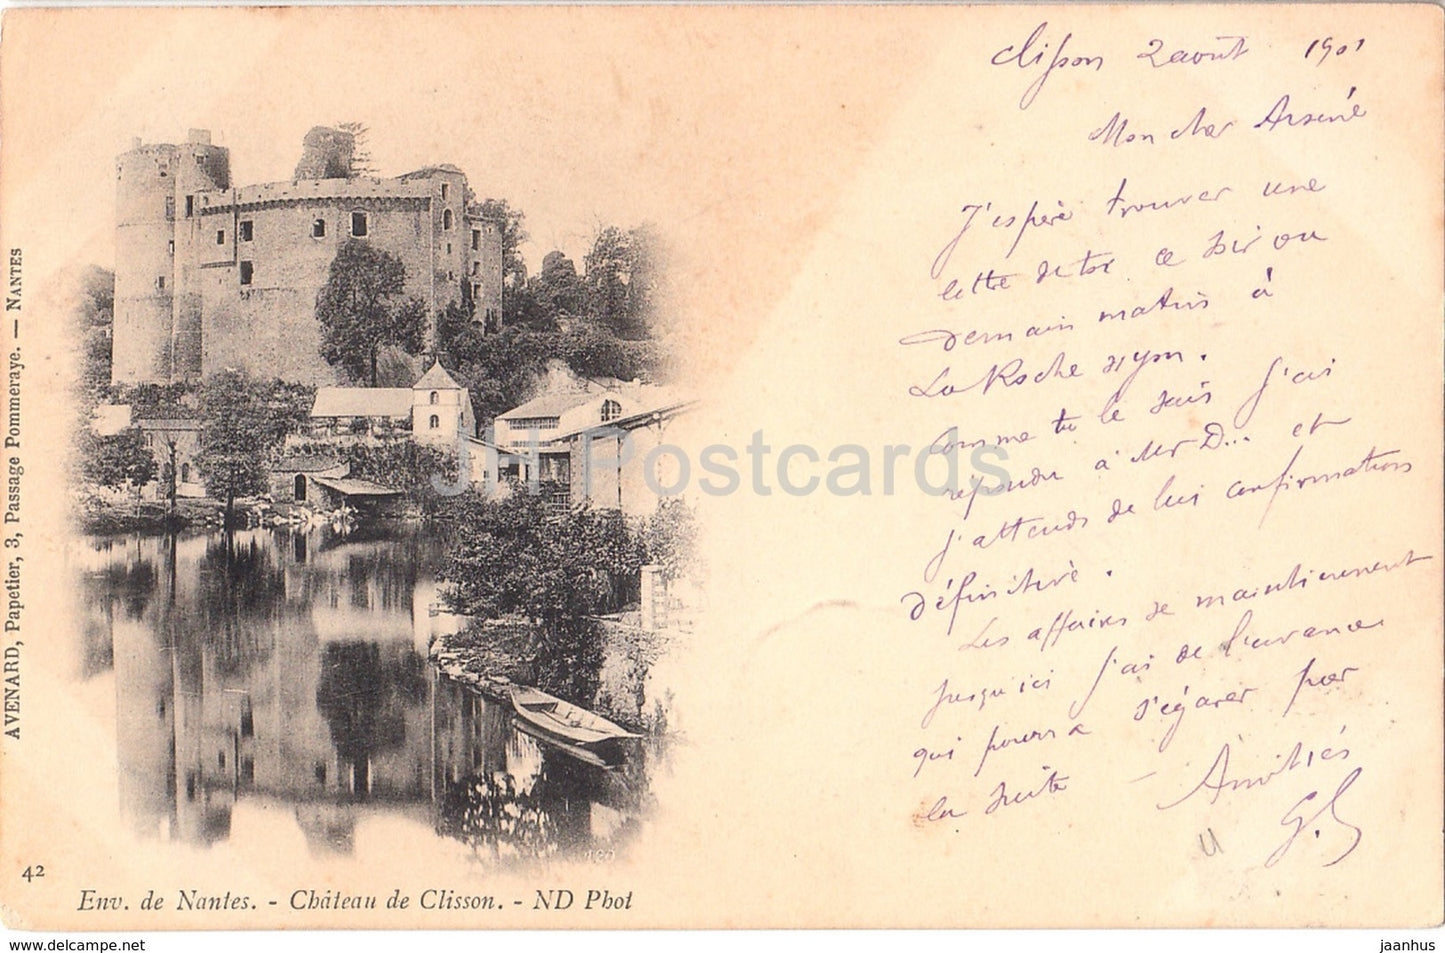 Clisson 2 août 1901
Mon cher Arsène
J'espère trouver une
lettre de toi ce soir ou
demain matin à
La Roche s/yon.
Comme tu le sais j'ai
répondu à Mr D... et
j'attends de lui confirmation
définitive.
Les affaires se maintiennent
jusqu'ici j'ai de l'avance
qui pourra s'égarer par
la suite — Amitiés
G.
AVENARD, Papetier, 3, Passage Pommeraye. — NANTES
JH Postcards
42
Env. de Nantes. - Château de Clisson. - ND Phot
https://www.akpool.net
jaanhus